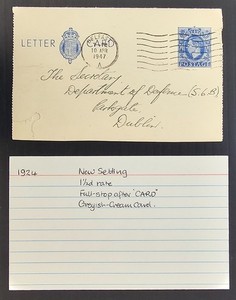 LETTER CARD
BELFAST
10 APR
1947
POSTAGE
The Secretary
Department of Defence (S.6B)
Parkgate
Dublin.
1924 New Setting
1½d rate
Full-stop after "CARD"
Greyish-Cream Card.